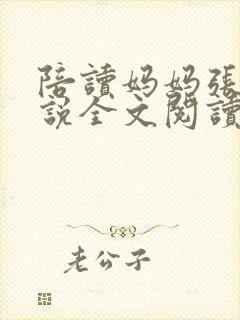 陪讀妈妈張
說全文閱讀
老公子